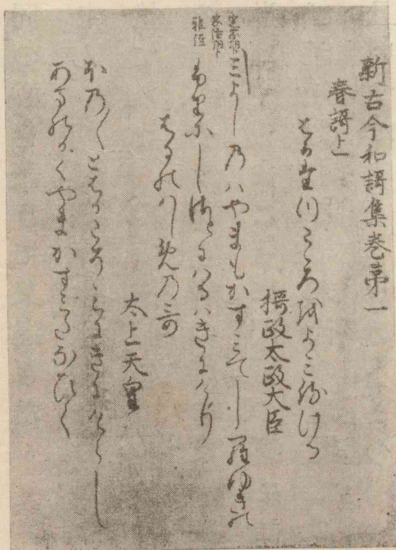 新古今和謌集巻第一
春謌上
はるたつこころをよみ侍ける
摂政太政大臣
雅経
みよしのはやまもかすみてしらゆきの
ふりにしさとにはるはきにけり
はるのはしめの哥
太上天皇
ほの〳〵とはるこそそらにきにけらし
あまのかくやまかすみたなひく